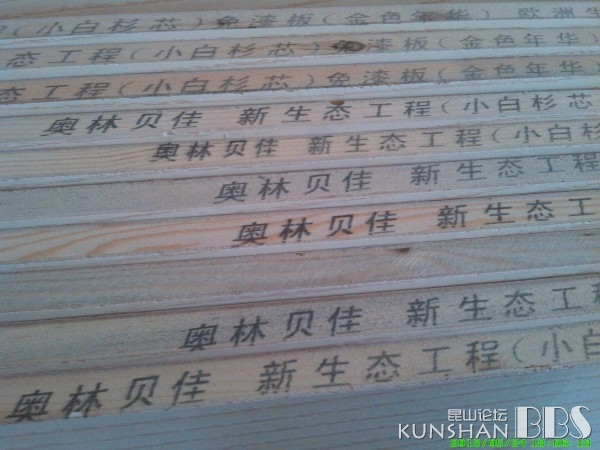 (小白杉芯)免漆板(金色年华)欧洲
态工程(小白杉芯)免漆板(金色年华)
态工程(小白杉芯)免漆板(金色年华
奥林贝佳 新生态工程(小白杉芯
奥林贝佳 新生态工程(小白杉
奥林贝佳 新生态工程
奥林贝佳 新生态工
奥林贝佳 新生态工程
奥林贝佳 新生态工程(小白
昆山论坛
KUNSHAN BBS